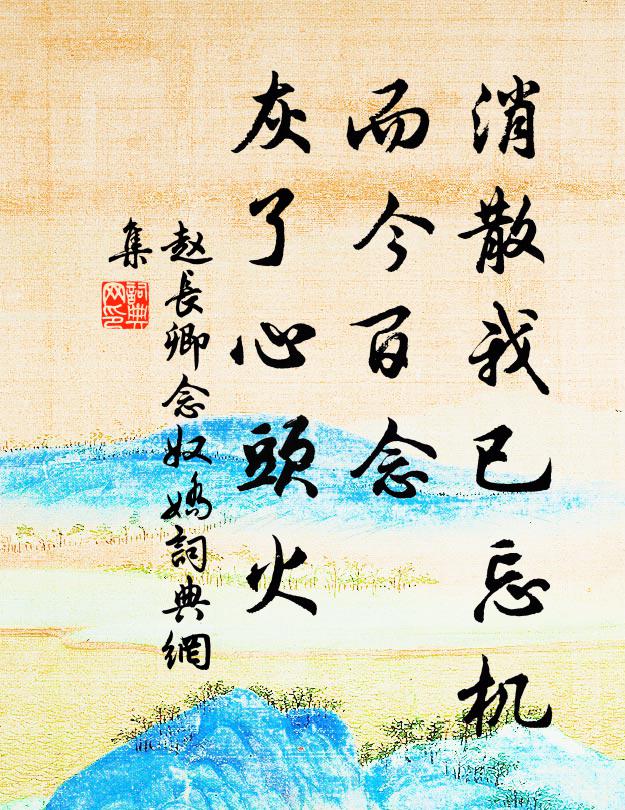 消散我已忘机
而今百念
灰了心頭火
赵長卿念奴嬌詞典網
集
詞典
网印